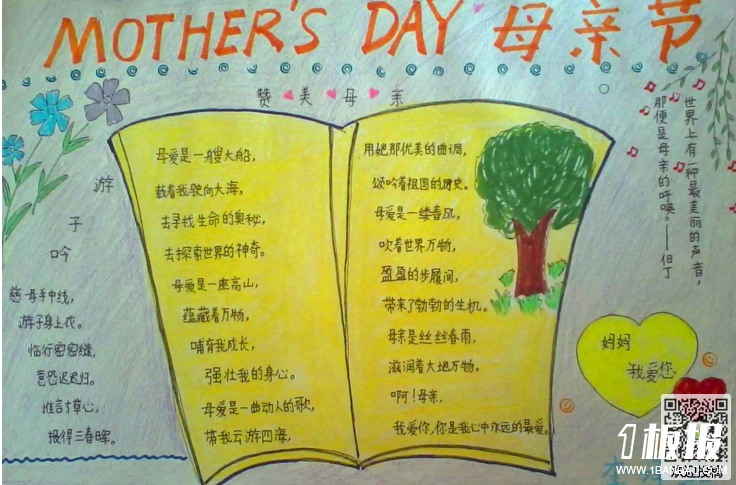 MOTHER'S DAY 母亲节
赞美母亲
母爱是一艘大船，
载着我驶向大海，
去寻找生命的奥秘，
去探索世界的神奇。
母爱是一座高山，
蕴藏着万物，
哺育我成长，
强壮我的身心。
母爱是一曲动人的歌，
带我云游四海，
用她那优美的曲调，
颂吟着祖国的历史。
母爱是一缕春风，
吹着世界万物，
盈盈的步履间，
带来了勃勃的生机。
母亲是丝丝春雨，
滋润着大地万物，
啊！母亲，
我爱你，你是我心中永远的最爱。
游子吟
慈母手中线，
游子身上衣。
临行密密缝，
意恐迟迟归。
谁言寸草心，
报得三春晖。
世界上有一种最美丽的声音，
那便是母亲的呼唤。——但丁
妈妈
我爱您
1板报
WWW.1BANBAO.COM
欢迎投稿